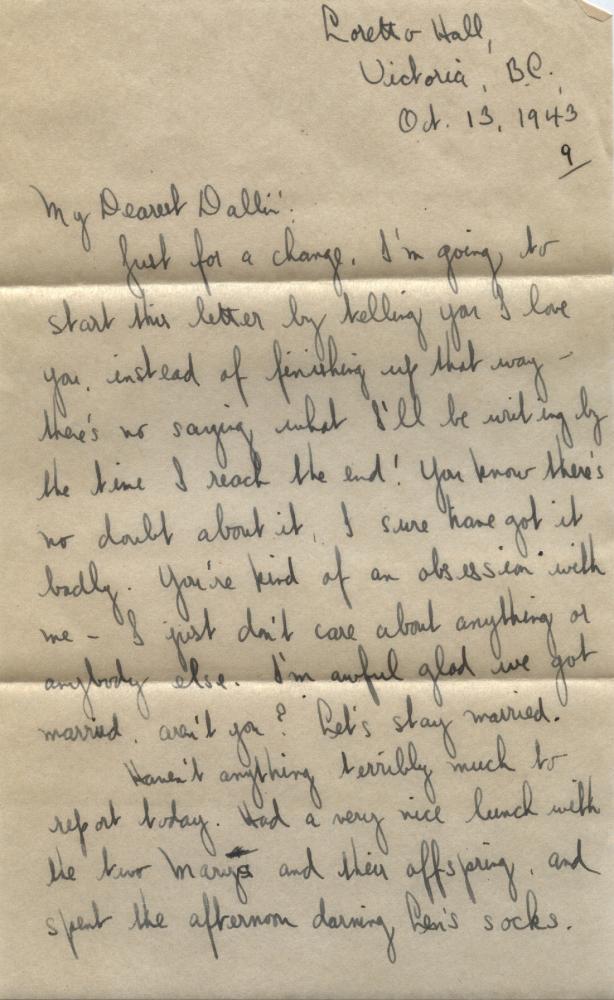 Loretto Hall,
Victoria, B.C.
Oct. 13, 1943
9
My Dearest Dallin':
Just for a change, I'm going to
start this letter by telling you I love
you, instead of finishing up that way -
there's no saying what I'll be writing by
the time I reach the end! You know there's
no doubt about it, I sure have got it
badly. You're kind of an obsession with
me - I just don't care about anything or
anybody else. I'm awful glad we got
married, aren't you? Let's stay married.
Haven't anything terribly much to
report today. Had a very nice lunch with
the two Marys and their offspring, and
spent the afternoon darning Len's socks.